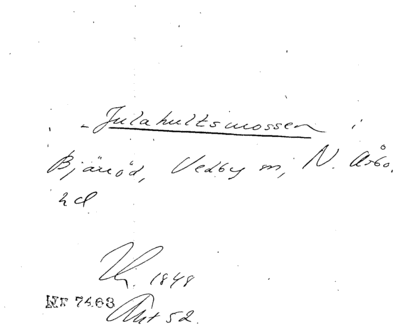 Julahultsmossen i
Bjäröd, Vedby m, N. Åsbo.
hd
1848
Nr 7463
Akt 52.